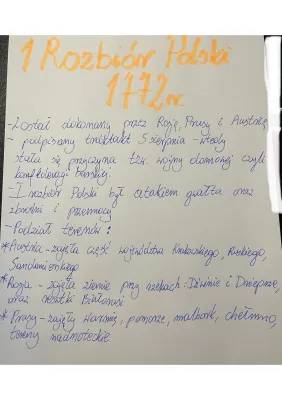 1 Rozbiór Polski
1772r.
- Został dokonany przez Rosję, Prusy i Austrię
- podpisany traktat 5 sierpnia - wtedy
stała się przyczyna tzw. wojny domowej czyli
konfederacji barskiej
- I rozbiór Polski był aktem gwałtu oraz
zbrodni i przemocy
- Podział terenów:
* Austria - zajęła część województwa Krakowskiego, Ruskiego,
Sandomierskiego
* Rosja - zajęła ziemie przy rzekach: Dźwinie i Dnieprze,
oraz resztki Białorusi
* Prusy - zajęły Warmię, pomorze, malbork, chełmno,
tereny nadnoteckie